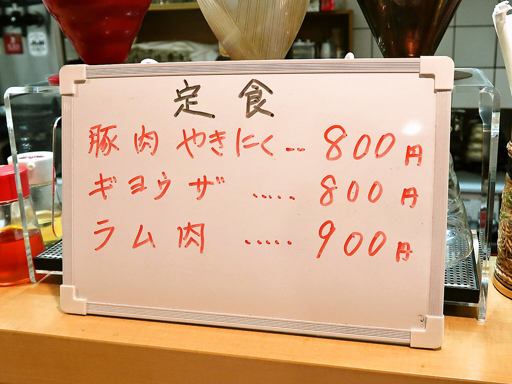 定食
豚肉やきにく‥800円
ギョウザ ‥‥‥800円
ラム肉 ‥‥‥900円